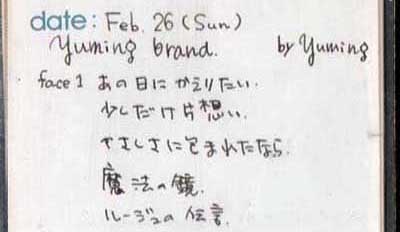 date: Feb. 26 (Sun)
Yuming brand. by Yuming
face 1 あの日にかえりたい.
少しだけ片想い.
やさしさに包まれたなら.
魔法の鏡.
ルージュの伝言.